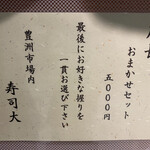 おまかせセット
五、〇〇〇円
最後にお好きな握りを
一貫お選び下さい
豊洲市場内
寿司大